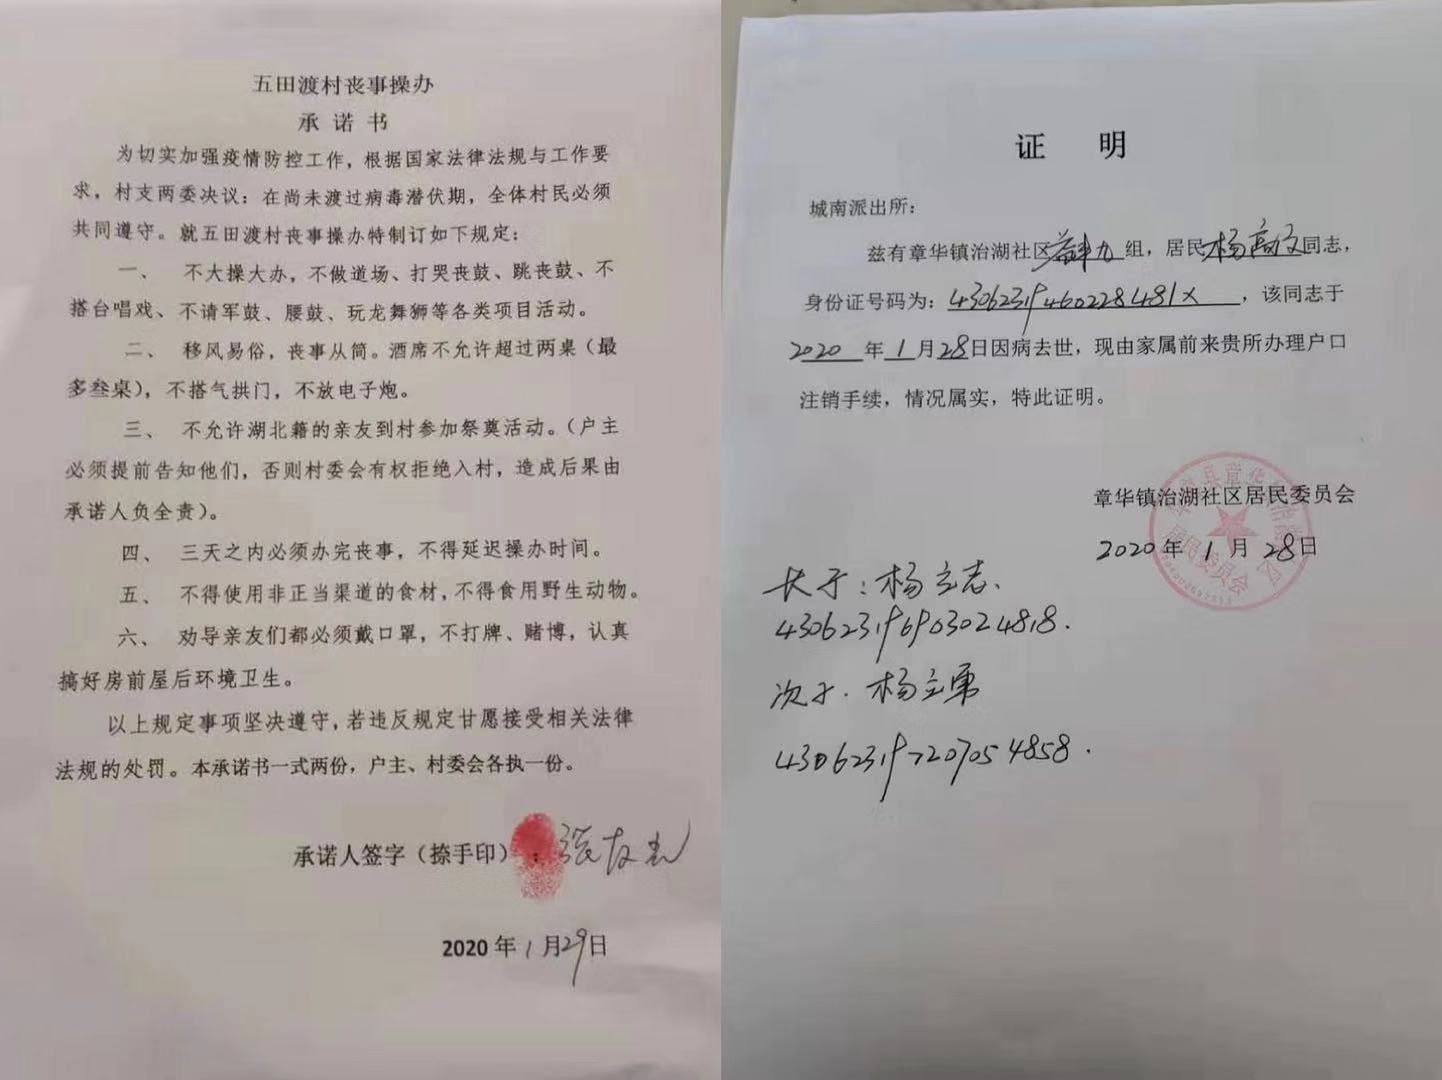 五田渡村丧事操办
承诺书
为切实加强疫情防控工作，根据国家法律法规与工作要
求，村支两委决议：在尚未渡过病毒潜伏期，全体村民必须
共同遵守。就五田渡村丧事操办特制订如下规定：
一、 不大操大办，不做道场、打哭丧鼓、跳丧鼓、不
搭台唱戏、不请军鼓、腰鼓、玩龙舞狮等各类项目活动。
二、 移风易俗，丧事从简。酒席不允许超过两桌（最
多叁桌），不搭气拱门，不放电子炮。
三、 不允许湖北籍的亲友到村参加祭奠活动。（户主
必须提前告知他们，否则村委会有权拒绝入村，造成后果由
承诺人负全责）。
四、 三天之内必须办完丧事，不得延迟操办时间。
五、 不得使用非正当渠道的食材，不得食用野生动物。
六、 劝导亲友们都必须戴口罩，不打牌、赌博，认真
搞好房前屋后环境卫生。
以上规定事项坚决遵守，若违反规定甘愿接受相关法律
法规的处罚。本承诺书一式两份，户主、村委会各执一份。
承诺人签字（捺手印）：张友志
2020年1月29日
证 明
城南派出所：
兹有章华镇治湖社区组，居民杨高文同志，
身份证号码为：43062319460228481X，该同志于
2020年1月28日因病去世，现由家属前来贵所办理户口
注销手续，情况属实，特此证明。
章华镇治湖社区居民委员会
2020年1月28日
长子：杨立志.
430623196903024818.
次子.杨立军
430623197207054858.